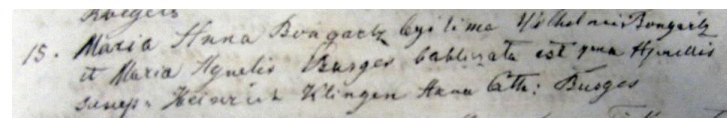 15. Maria Anna Bongartz legitima Wilhelmi Bongartz
et Maria Agnetis Burges babtizata est Aprillis
suscep: Heinrich Klingen Anna Cath: Burges